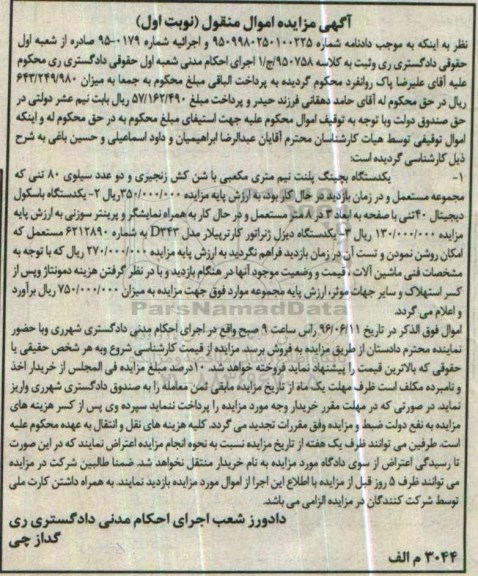 آگهی مزایده اموال منقول (نوبت اول)
نظر به اینکه به موجب دادنامه شماره ۹۵۰۹۹۸۰۲۵۰۱۰۰۲۲۵ و اجرائیه شماره ۰۱۷۹-۹۵ صادره از شعبه اول
حقوقی دادگستری ری وثبت به کلاسه ۹۵۰۷۵۸/ج/۱ اجرای احکام مدنی شعبه اول حقوقی دادگستری ری محکوم
علیه آقای علیرضا پاک روانفرد محکوم گردیده به پرداخت الباقی مبلغ محکوم به جمعا به میزان ۶۴۳/۲۴۹/۹۸۰
ریال در حق محکوم له آقای حامد دهقانی فرزند حیدر و پرداخت مبلغ ۵۷/۱۶۲/۴۹۰ ریال بابت نیم عشر دولتی در
حق صندوق دولت وبا توجه به توقیف اموال محکوم علیه جهت استیفای مبلغ محکوم به در حق محکوم له و اینکه
اموال توقیفی توسط هیات کارشناسان محترم آقایان عبدالرضا ابراهیمیان و داود اسماعیلی و حسین باغی به شرح
ذیل کارشناسی گردیده است:
۱- یکدستگاه بچینگ پلنت نیم متری مکعبی با شن کش زنجیری و دو عدد سیلوی ۸۰ تنی که
مجموعه مستعمل و در زمان بازدید در حال کار بود، به ارزش پایه مزایده ۳۵۰/۰۰۰/۰۰۰ریال ۲- یکدستگاه باسکول
دیجیتال ۴۰تنی با صفحه به ابعاد ۳ در ۸ متر مستعمل و در حال کار به همراه نمایشگر و پرینتر سوزنی به ارزش پایه
مزایده ۱۳۰/۰۰۰/۰۰۰ ریال ۳- یکدستگاه دیزل ژنراتور کاترپیلار مدل D۳۴۳ به شماره ۶۲۱۲۸۹۰ مستعمل که
امکان روشن نمودن و تست آن در زمان بازدید فراهم نگردید به ارزش پایه مزایده ۲۷۰/۰۰۰/۰۰۰ ریال که با توجه به
مشخصات فنی ماشین آلات ، قیمت و وضعیت موجود آنها در هنگام بازدید و با در نظر گرفتن هزینه دمونتاژ وپس از
کسر استهلاک و سایر جهات موثر، ارزش پایه مجموعه موارد فوق جهت مزایده به میزان ۷۵۰/۰۰۰/۰۰۰ ریال برآورد
و اعلام می گردد.
ParsNamadData
اموال فوق الذکر در تاریخ ۹۶/۰۶/۱۱ راس ساعت ۹ صبح واقع در اجرای احکام مدنی دادگستری شهرری وبا حضور
نماینده محترم دادستان از طریق مزایده به فروش برسد. مزایده از قیمت کارشناسی شروع وبه هر شخص حقیقی یا
حقوقی که بالاترین قیمت را پیشنهاد نماید فروخته خواهد شد. ۱۰درصد مبلغ مزایده فی المجلس از خریدار اخذ
و نامبرده مکلف است ظرف مهلت یک ماه از تاریخ مزایده مابقی ثمن معامله را به صندوق دادگستری شهرری واریز
نماید. در صورتی که در مهلت مقرر خریدار وجه مورد مزایده را پرداخت ننماید سپرده وی پس از کسر هزینه های
مزایده به نفع دولت ضبط و مزایده وفق مقررات تجدید می گردد. کلیه هزینه های نقل و انتقال به عهده محکوم علیه
است. طرفین می توانند ظرف یک هفته از تاریخ مزایده نسبت به نحوه انجام مزایده اعتراض نمایند که در این صورت
تا رسیدگی اعتراض از سوی دادگاه مورد مزایده به نام خریدار منتقل نخواهد شد. ضمنا طالبین شرکت در مزایده
می توانند ظرف ۵ روز قبل از مزایده با اطلاع این اجرا از اموال مورد مزایده بازدید نمایند. به همراه داشتن کارت ملی
توسط شرکت کنندگان در مزایده الزامی می باشد.
دادورز شعب اجرای احکام مدنی دادگستری ری
گداز چی
۳۰۴۴ م الف